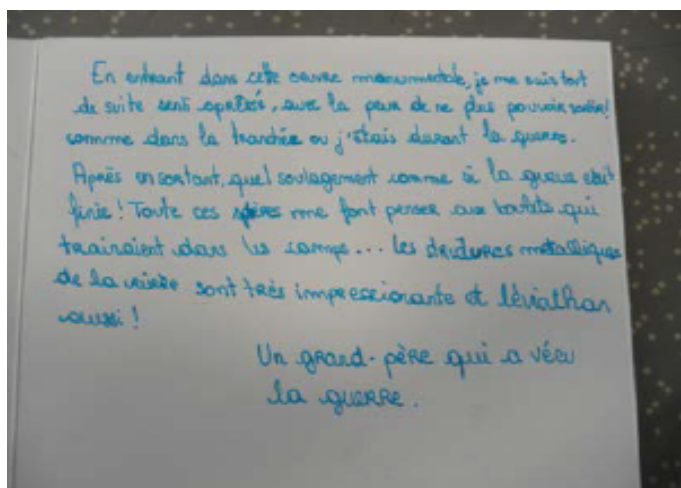 En entrant dans cette oeuvre monumentale, je me suis tout
de suite senti opréssé, avec la peur de ne plus pouvoir sortir!
comme dans la tranchée ou j'étais durant la guerre.
Après en sortant, quel soulagement comme si la guerre était
finie! Toute ces sphères me font penser aux qui
trainaient dans les camps... les metalliques
de la sont très impressionante et léviathan
aussi!
Un grand-père qui a vécu
la guerre.